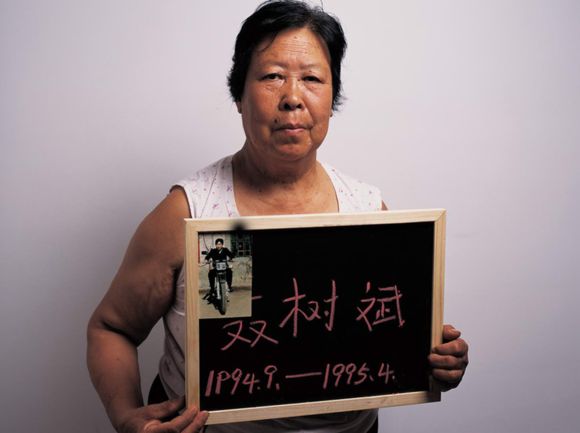 聂树斌
1994.9.—1995.4.